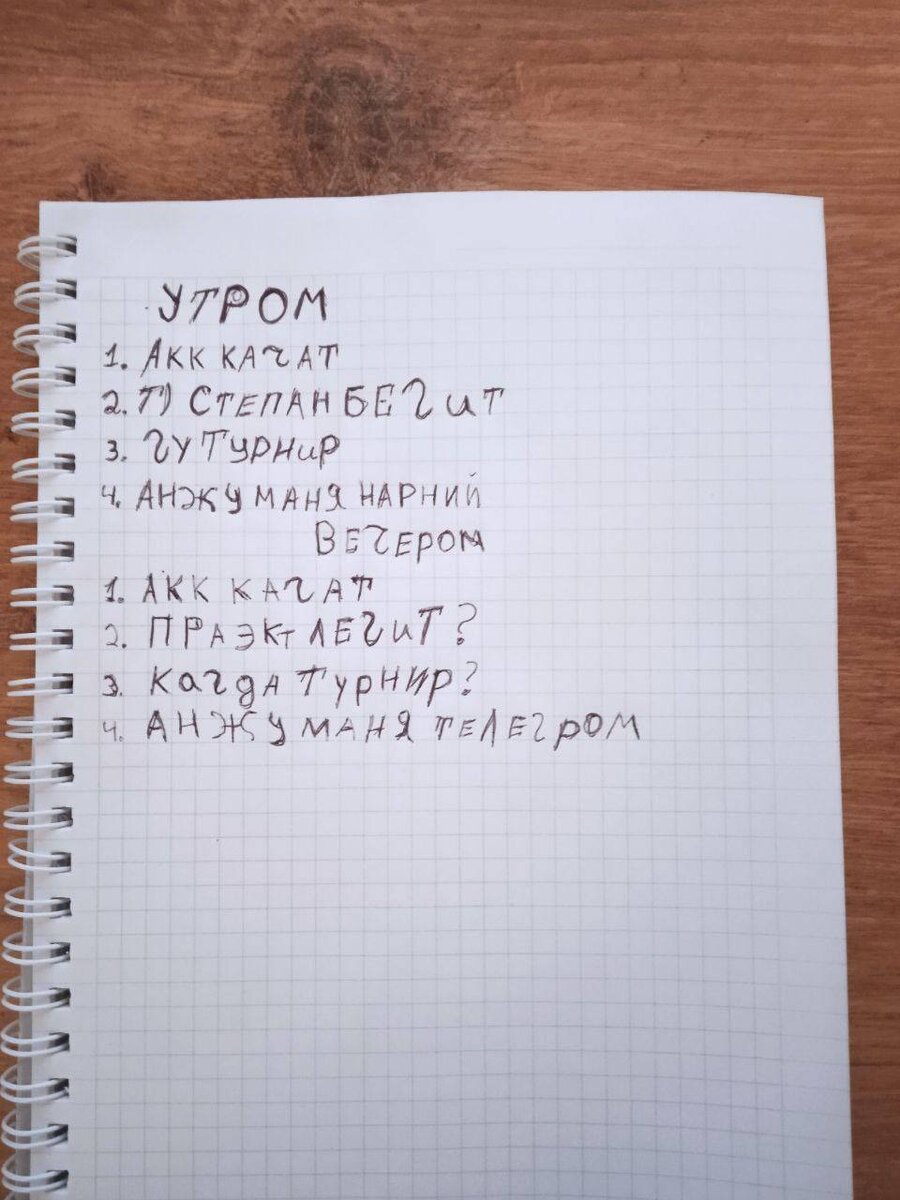 УТРОМ
1. АКК КАЧАТ
2. Т) СТЕПАН БЕГИТ
3. ГУ ТУРНИР
4. АНЖУМАНЯ НАРНИЙ
ВЕЧЕРОМ
1. АКК КАЧАТ
2. ПРАЭКТ ЛЕГИТ?
3. КАГДА ТУРНИР?
4. АНЖУМАНЯ ТЕЛЕГРОМ